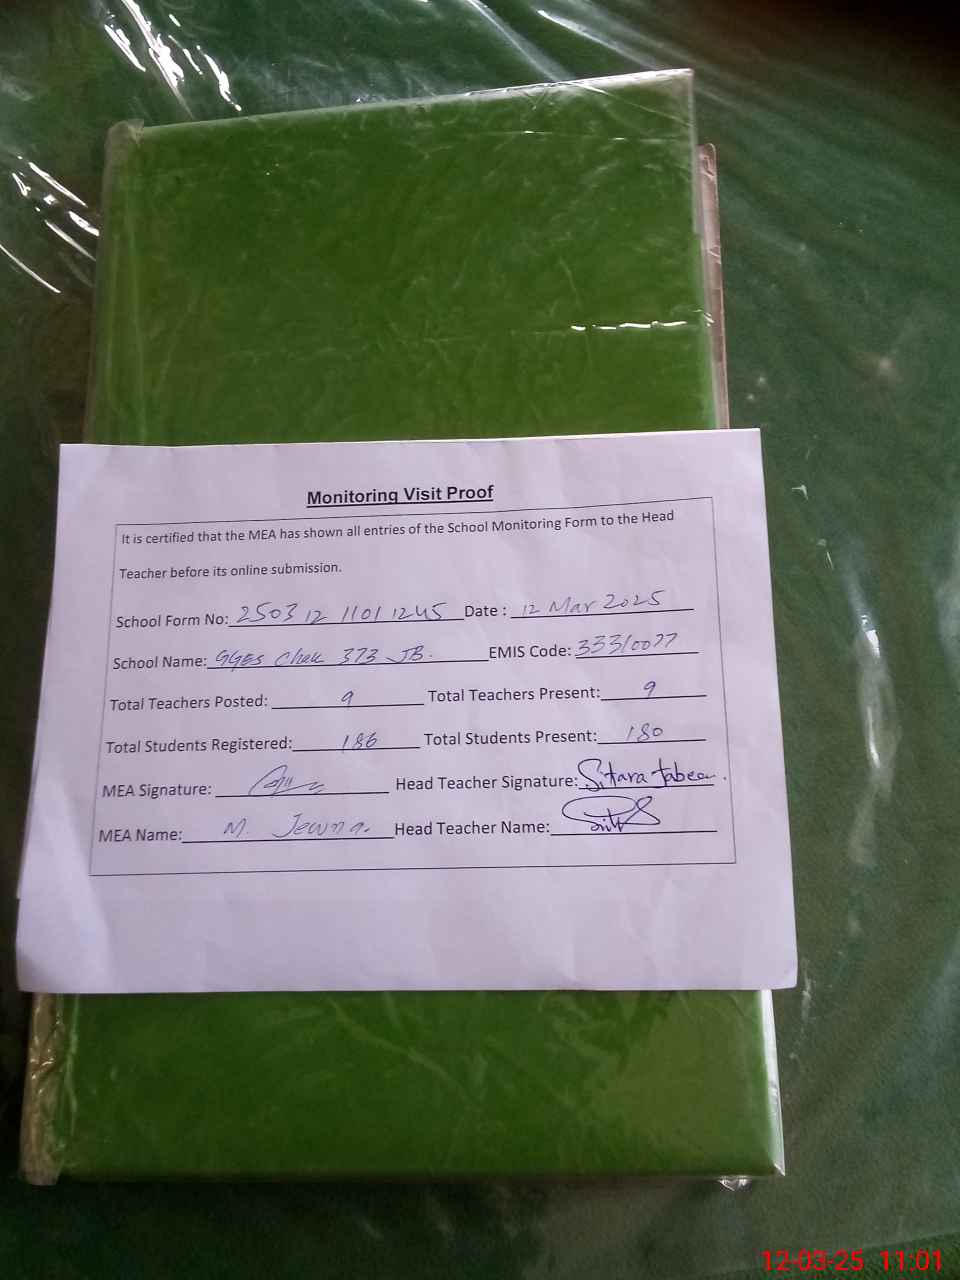 Monitoring Visit Proof
It is certified that the MEA has shown all entries of the School Monitoring Form to the Head
Teacher before its online submission.
School Form No: 250312 1101 1245 Date : 12 Mar 2025
School Name: GGES Chak 373 JB. EMIS Code: 33310077
Total Teachers Posted: 9 Total Teachers Present: 9
Total Students Registered: 186 Total Students Present: 180
MEA Signature: Head Teacher Signature: Sitara
MEA Name: M. Head Teacher Name:
12-03-25 11:01